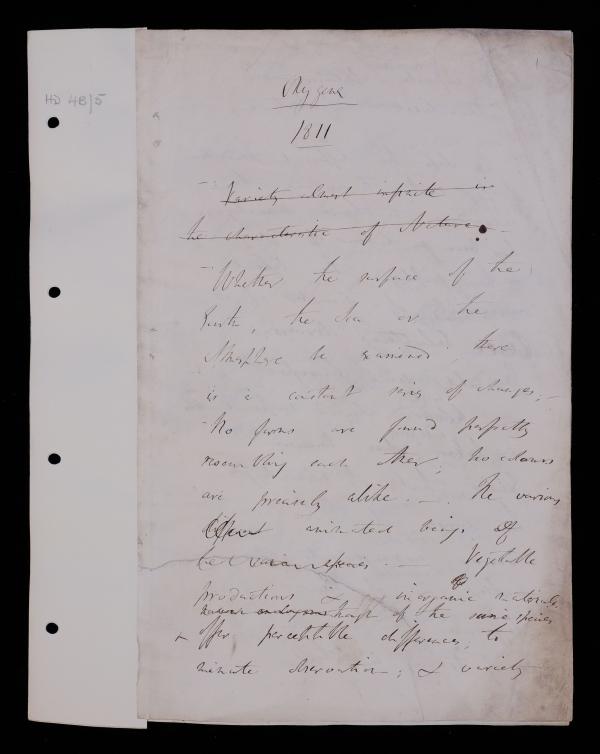 HD 4B/5
Oxygene
1811
Variety almost infinite is
the characteristic of Nature
Whether the surface of the
Earth, the sea or the
Atmosphere be examined there
is a constant series of changes;
No forms are found perfectly
resembling each other, no colours
are precisely alike. — The various
animated beings of
species — Vegetable
productions & inorganic materials
though of the same species
offer perceptible differences, to
minute observation; & variety